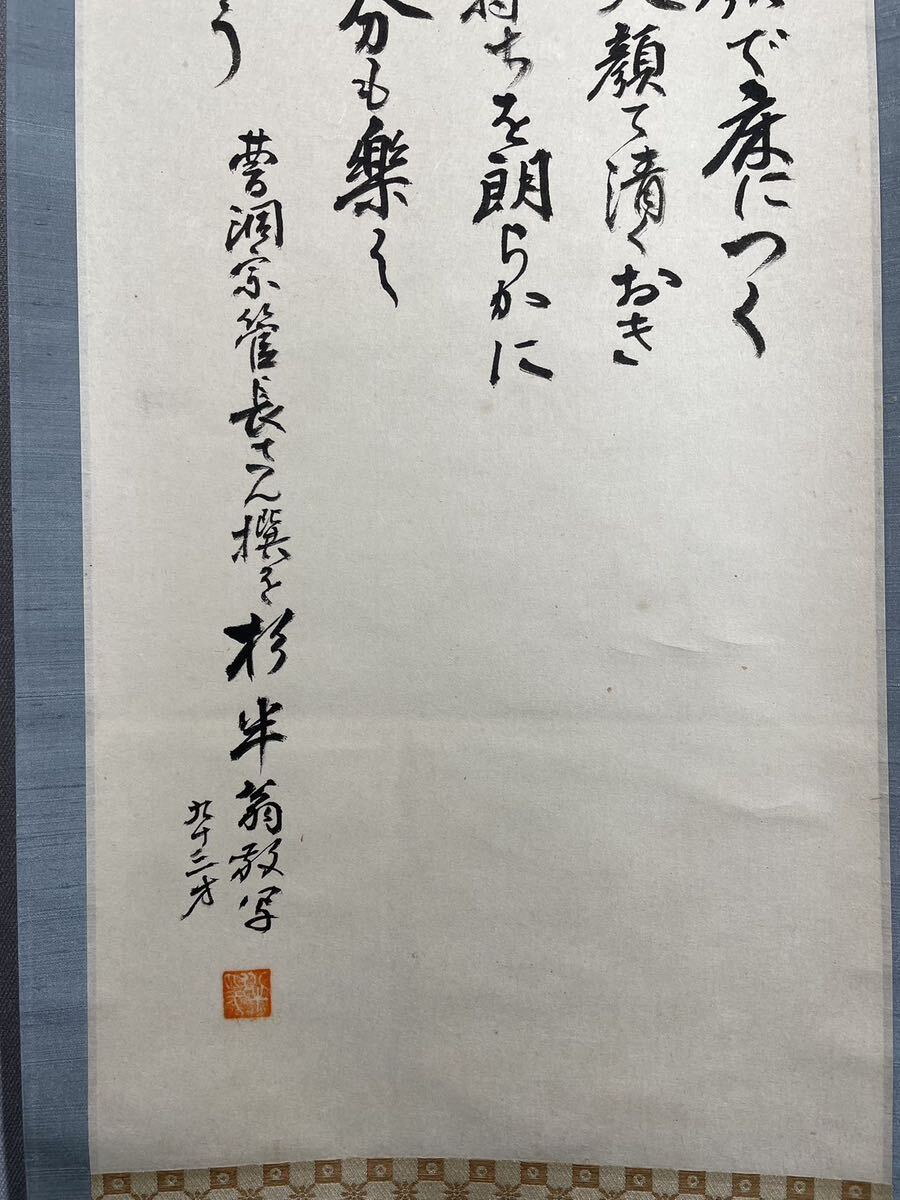 顔で床につく
顔て清くおき
持ちを朗らかに
分も楽く
う
曹洞宗管長さん撰を杉半翁敬写
九十三才